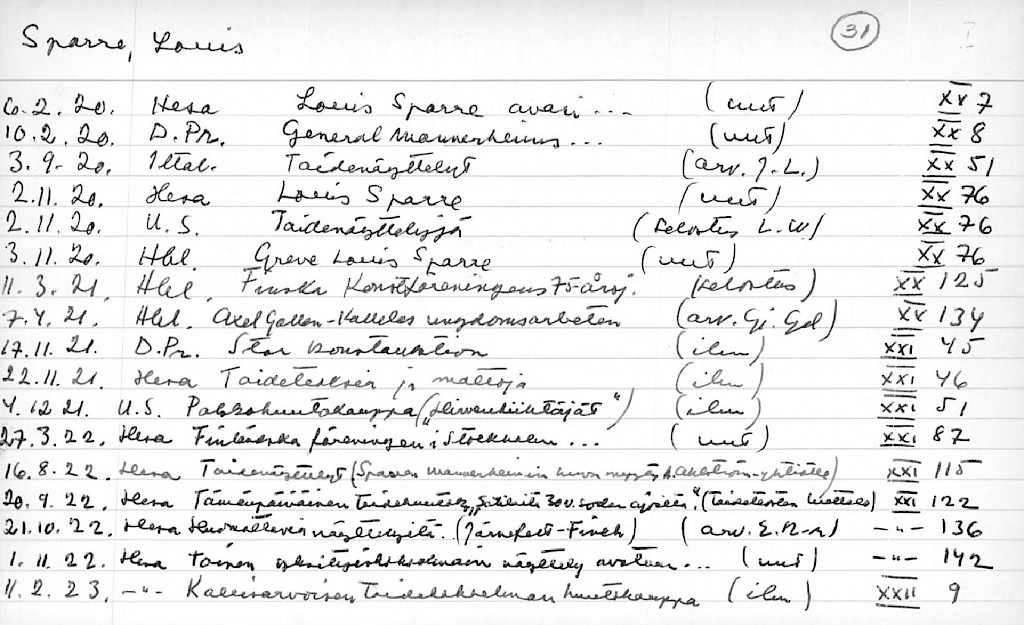 Sparre, Louis 31 I
6.2.20. Hesa Louis Sparre avasi ... (uut) XX 7
10.2.20. D.Pr. General Mannerheims ... (uut) XX 8
3.9.20. Iltal. Taidenäyttelyt (arv. J.L.) XX 51
2.11.20. Hesa Louis Sparre (uut) XX 76
2.11.20. U.S. Taidenäyttelyjä (selostus L.W) XX 76
3.11.20. Hbl. Greve Louis Sparre (uut) XX 76
11.3.21. Hbl. Finska Konstföreningens 75-årsj. (selostus) XX 125
7.4.21. Hbl. Axel Gallen-Kallelas ungdomsarbeten (arv. Gj. Gd) XX 134
17.11.21. D.Pr. Stor konstauktion (ilm) XXI 45
22.11.21. Hesa Taideteoksia ja mattoja (ilm) XXI 46
4.12 21. U.S. Pakkohuutokauppa ("Hirvenhiihtäjät") (ilm) XXI 51
27.3.22. Hesa Finländska föreningen i Stockholm ... (uut) XXI 87
16.8.22. Hesa Taidenäyttelyt (Sparren Mannerheimin kuva myyty A. Ahlström-yhtiölle) XXI 115
20.9.22. Hesa Tämänpäiväinen taidehuutok. 30v. sodan ajoilta". (taideteosten luettelo) XXI 122
21.10.22. Hesa Huomattavia näyttelyitä. (Järnefelt-Finch) (arv. E.R-r) -"- 136
1.11.22. Hesa Toinen yksityiskokoelmain näyttely avataan ... (uut) -"- 142
11.2.23. -"- Kallisarvoisen taidekokoelman huutokauppa (ilm) XXII 9